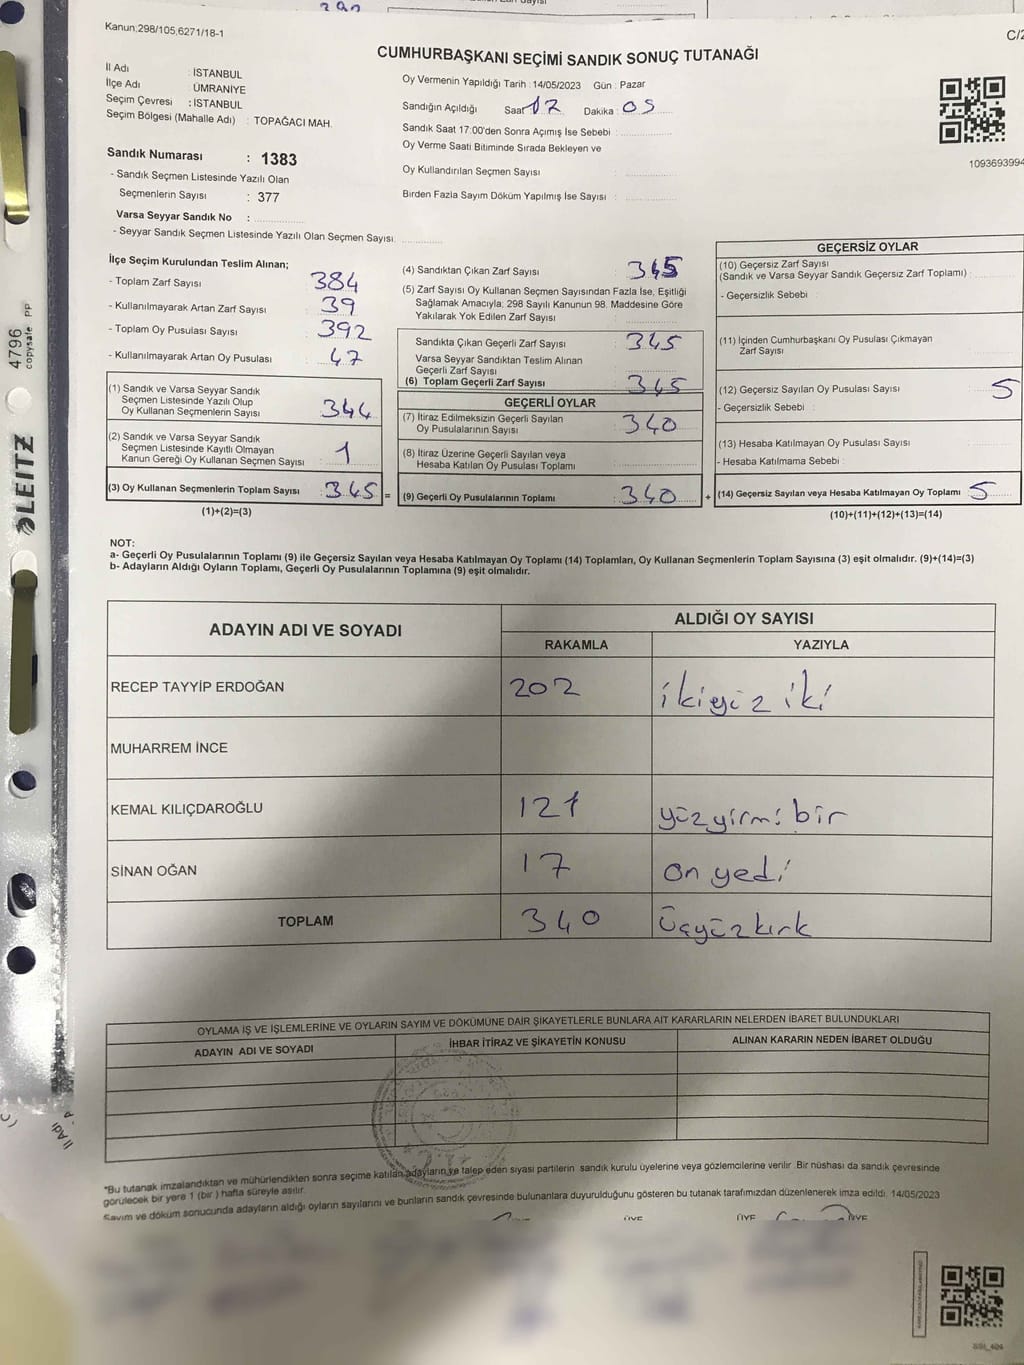 Kanun;298/105,6271/18-1
C/2
CUMHURBAŞKANI SEÇİMİ SANDIK SONUÇ TUTANAĞI
İl Adı : İSTANBUL
İlçe Adı : ÜMRANİYE
Seçim Çevresi : İSTANBUL
Seçim Bölgesi (Mahalle Adı) : TOPAĞACI MAH.
Sandık Numarası : 1383
- Sandık Seçmen Listesinde Yazılı Olan
Seçmenlerin Sayısı : 377
Varsa Seyyar Sandık No :
- Seyyar Sandık Seçmen Listesinde Yazılı Olan Seçmen Sayısı
Oy Vermenin Yapıldığı Tarih : 14/05/2023 Gün : Pazar
Sandığın Açıldığı Saat 17 Dakika : 05
Sandık Saat 17:00'den Sonra Açımış İse Sebebi :
Oy Verme Saati Bitiminde Sırada Bekleyen ve
Oy Kullandırılan Seçmen Sayısı :
Birden Fazla Sayım Döküm Yapılmış İse Sayısı :
1093693994
İlçe Seçim Kurulundan Teslim Alınan;
- Toplam Zarf Sayısı : 384
- Kullanılmayarak Artan Zarf Sayısı : 39
- Toplam Oy Pusulası Sayısı : 392
- Kullanılmayarak Artan Oy Pusulası : 47
(1) Sandık ve Varsa Seyyar Sandık
Seçmen Listesinde Yazılı Olup
Oy Kullanan Seçmenlerin Sayısı : 344
(2) Sandık ve Varsa Seyyar Sandık
Seçmen Listesinde Kayıtlı Olmayan
Kanun Gereği Oy Kullanan Seçmen Sayısı : 1
(3) Oy Kullanan Seçmenlerin Toplam Sayısı : 345 =
(1)+(2)=(3)
(4) Sandıktan Çıkan Zarf Sayısı : 345
(5) Zarf Sayısı Oy Kullanan Seçmen Sayısından Fazla İse, Eşitliği
Sağlamak Amacıyla; 298 Sayılı Kanunun 98. Maddesine Göre
Yakılarak Yok Edilen Zarf Sayısı :
Sandıkta Çıkan Geçerli Zarf Sayısı : 345
Varsa Seyyar Sandıktan Teslim Alınan
Geçerli Zarf Sayısı :
(6) Toplam Geçerli Zarf Sayısı : 345
GEÇERLİ OYLAR
(7) İtiraz Edilmeksizin Geçerli Sayılan
Oy Pusulalarının Sayısı : 340
(8) İtiraz Üzerine Geçerli Sayılan veya
Hesaba Katılan Oy Pusulası Toplamı :
(9) Geçerli Oy Pusulalarının Toplamı : 340 +
GEÇERSİZ OYLAR
(10) Geçersiz Zarf Sayısı
(Sandık ve Varsa Seyyar Sandık Geçersiz Zarf Toplamı) :
- Geçersizlik Sebebi :
(11) İçinden Cumhurbaşkanı Oy Pusulası Çıkmayan
Zarf Sayısı :
(12) Geçersiz Sayılan Oy Pusulası Sayısı : 5
- Geçersizlik Sebebi :
(13) Hesaba Katılmayan Oy Pusulası Sayısı :
- Hesaba Katılmama Sebebi :
(14) Geçersiz Sayılan veya Hesaba Katılmayan Oy Toplamı : 5
(10)+(11)+(12)+(13)=(14)
NOT:
a- Geçerli Oy Pusulalarının Toplamı (9) ile Geçersiz Sayılan veya Hesaba Katılmayan Oy Toplamı (14) Toplamları, Oy Kullanan Seçmenlerin Toplam Sayısına (3) eşit olmalıdır. (9)+(14)=(3)
b- Adayların Aldığı Oyların Toplamı, Geçerli Oy Pusulalarının Toplamına (9) eşit olmalıdır.
ADAYIN ADI VE SOYADI
ALDIĞI OY SAYISI
RAKAMLA YAZIYLA
RECEP TAYYİP ERDOĞAN 202 ikiyüz iki
MUHARREM İNCE
KEMAL KILIÇDAROĞLU 121 yüzyirmi bir
SİNAN OĞAN 17 on yedi
TOPLAM 340 Üçyüzkırk
OYLAMA İŞ VE İŞLEMLERİNE VE OYLARIN SAYIM VE DÖKÜMÜNE DAİR ŞİKAYETLERLE BUNLARA AİT KARARLARIN NELERDEN İBARET BULUNDUKLARI
ADAYIN ADI VE SOYADI İHBAR İTİRAZ VE ŞİKAYETİN KONUSU ALINAN KARARIN NEDEN İBARET OLDUĞU
*Bu tutanak imzalandıktan ve mühürlendikten sonra seçime katılan adayların ve talep eden siyasi partilerin sandık kurulu üyelerine veya gözlemcilerine verilir. Bir nüshası da sandık çevresinde
görülecek bir yere 1 (bir) hafta süreyle asılır.
Sayım ve döküm sonucunda adayların aldığı oyların sayılarını ve bunların sandık çevresinde bulunanlara duyurulduğunu gösteren bu tutanak tarafımızdan düzenlenerek imza edildi. 14/05/2023
ÜYE ÜYE ÜYE
LEITZ
4796
copysafe PP
İl Adı